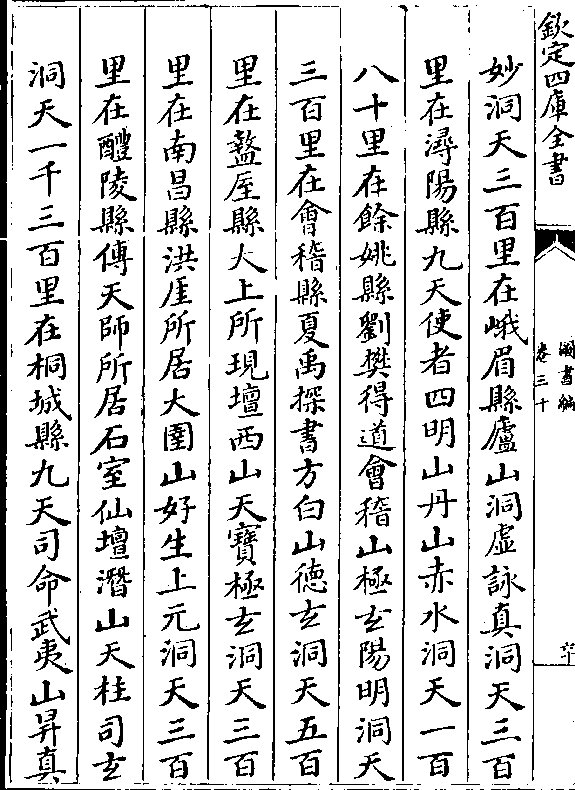 欽定四庫全書
圖書編
卷三十
妙洞天三百里在峨眉縣廬山洞虛詠真洞天三百
里在潯陽縣九天使者四明山丹山赤水洞天一百
八十里在餘姚縣劉樊得道會稽山極玄陽明洞天
三百里在會稽縣夏禹探書方白山德玄洞天五百
里在盩厔縣大上所現壇西山天寶極玄洞天三百
里在南昌縣洪厓所居大圍山好生上元洞天三百
里在醴陵縣傅天師所居石室仙壇潛山天柱司玄
洞天一千三百里在桐城縣九天司命武夷山昇真